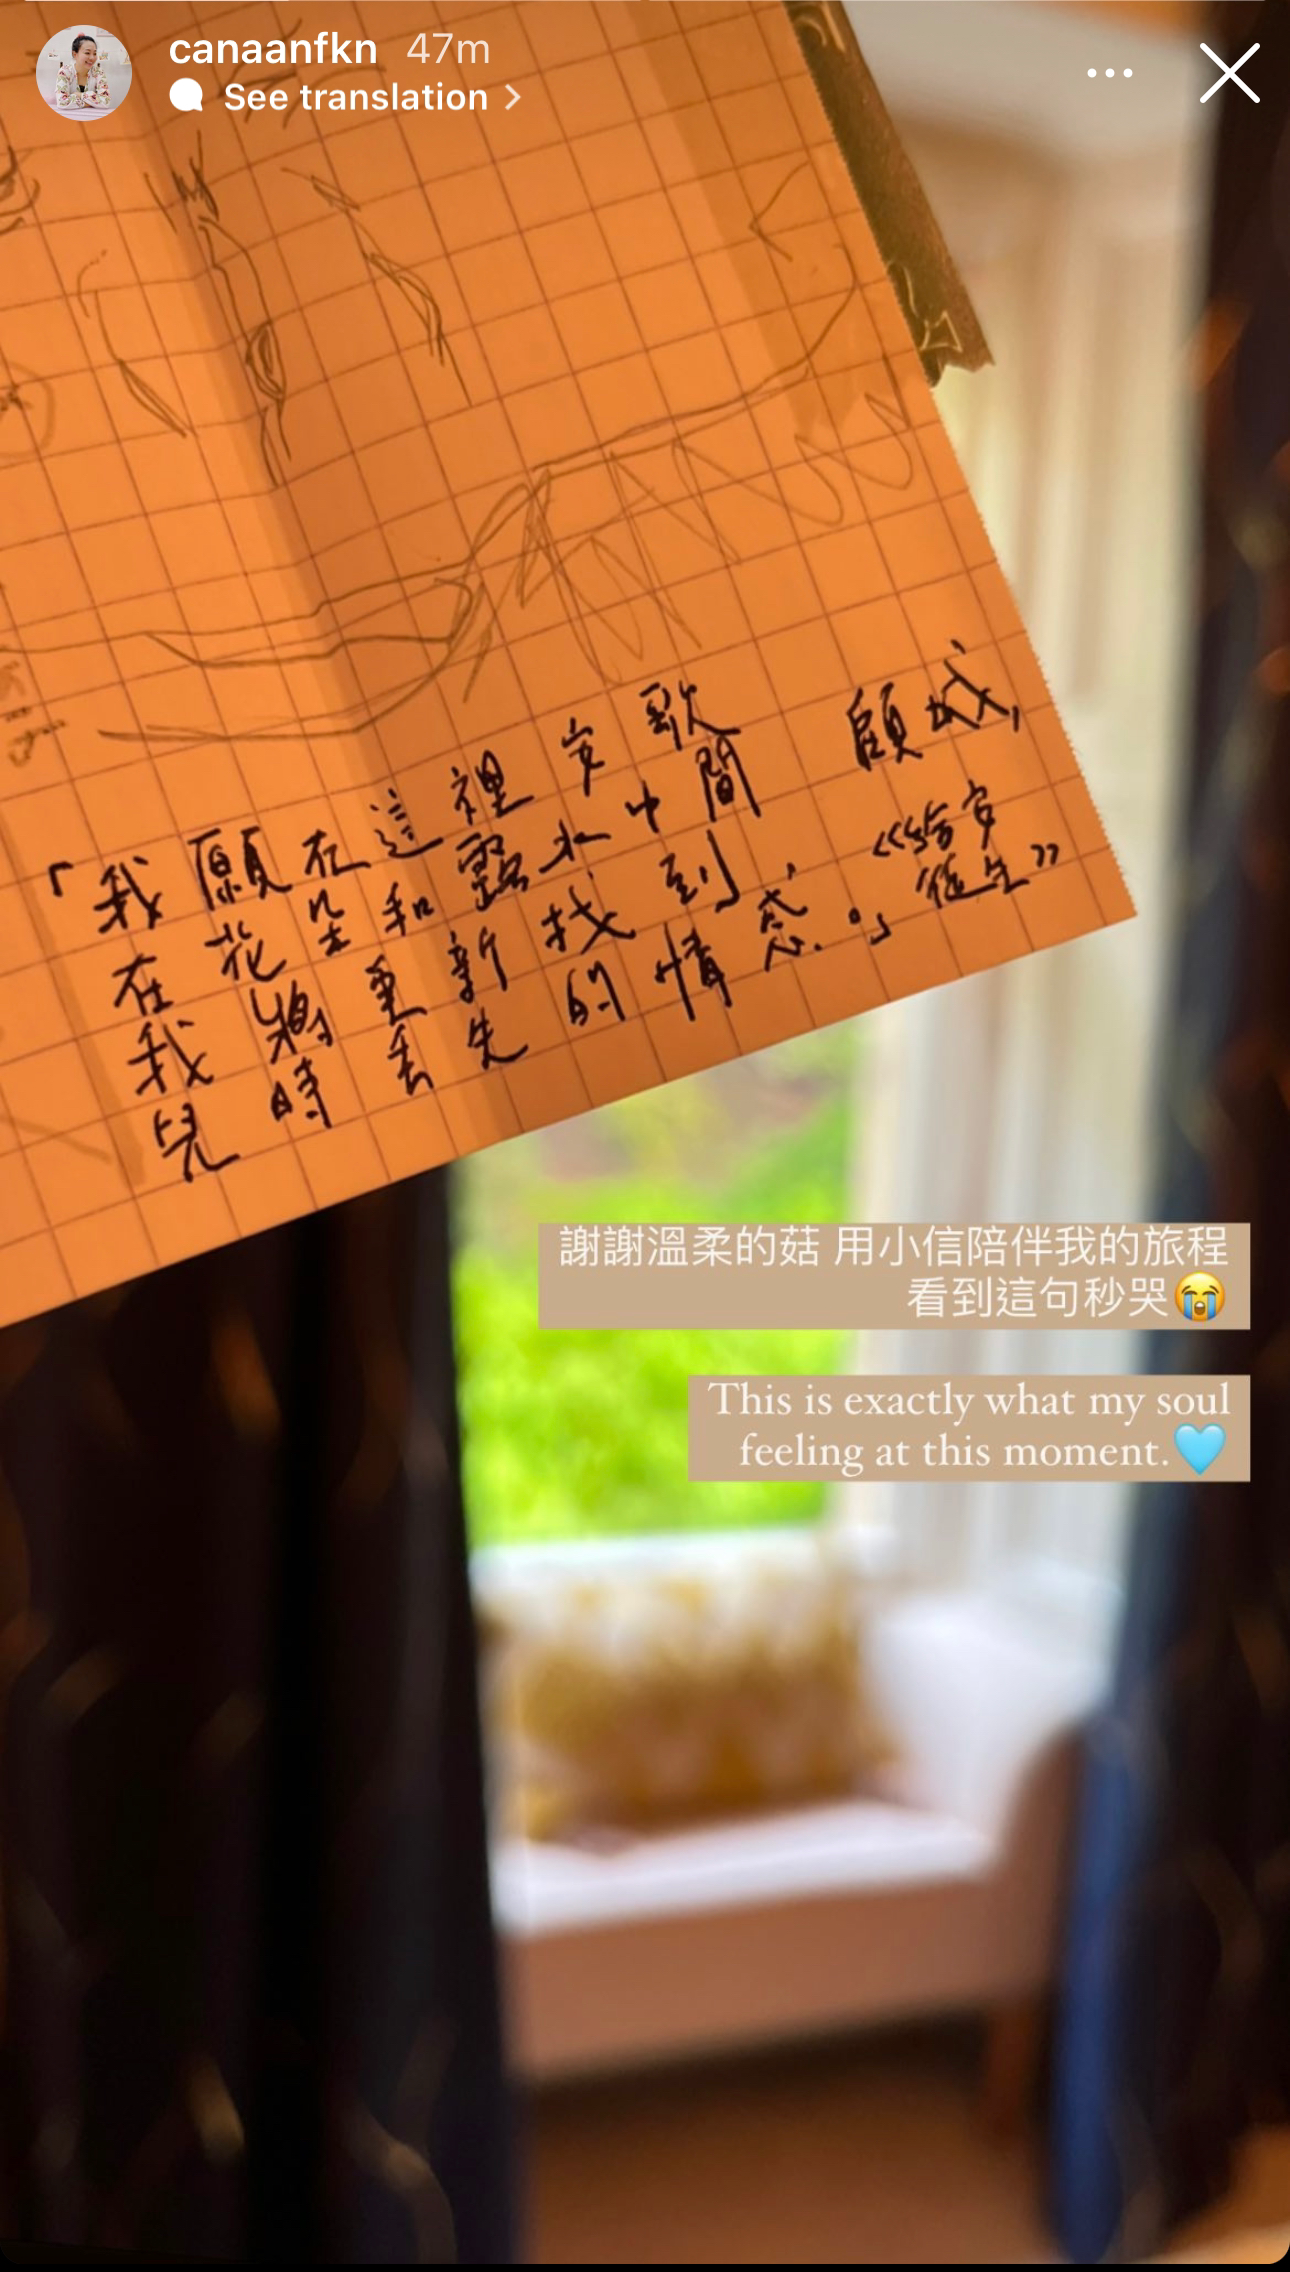 canaanfkn 47m
See translation
「我願在這裡安歇
在花朵和露水中間
我將重新找到
兒時丟失的情感。」
顧城,
《給安
徒生》
謝謝溫柔的菇 用小信陪伴我的旅程
看到這句秒哭😭
This is exactly what my soul
feeling at this moment.🩵